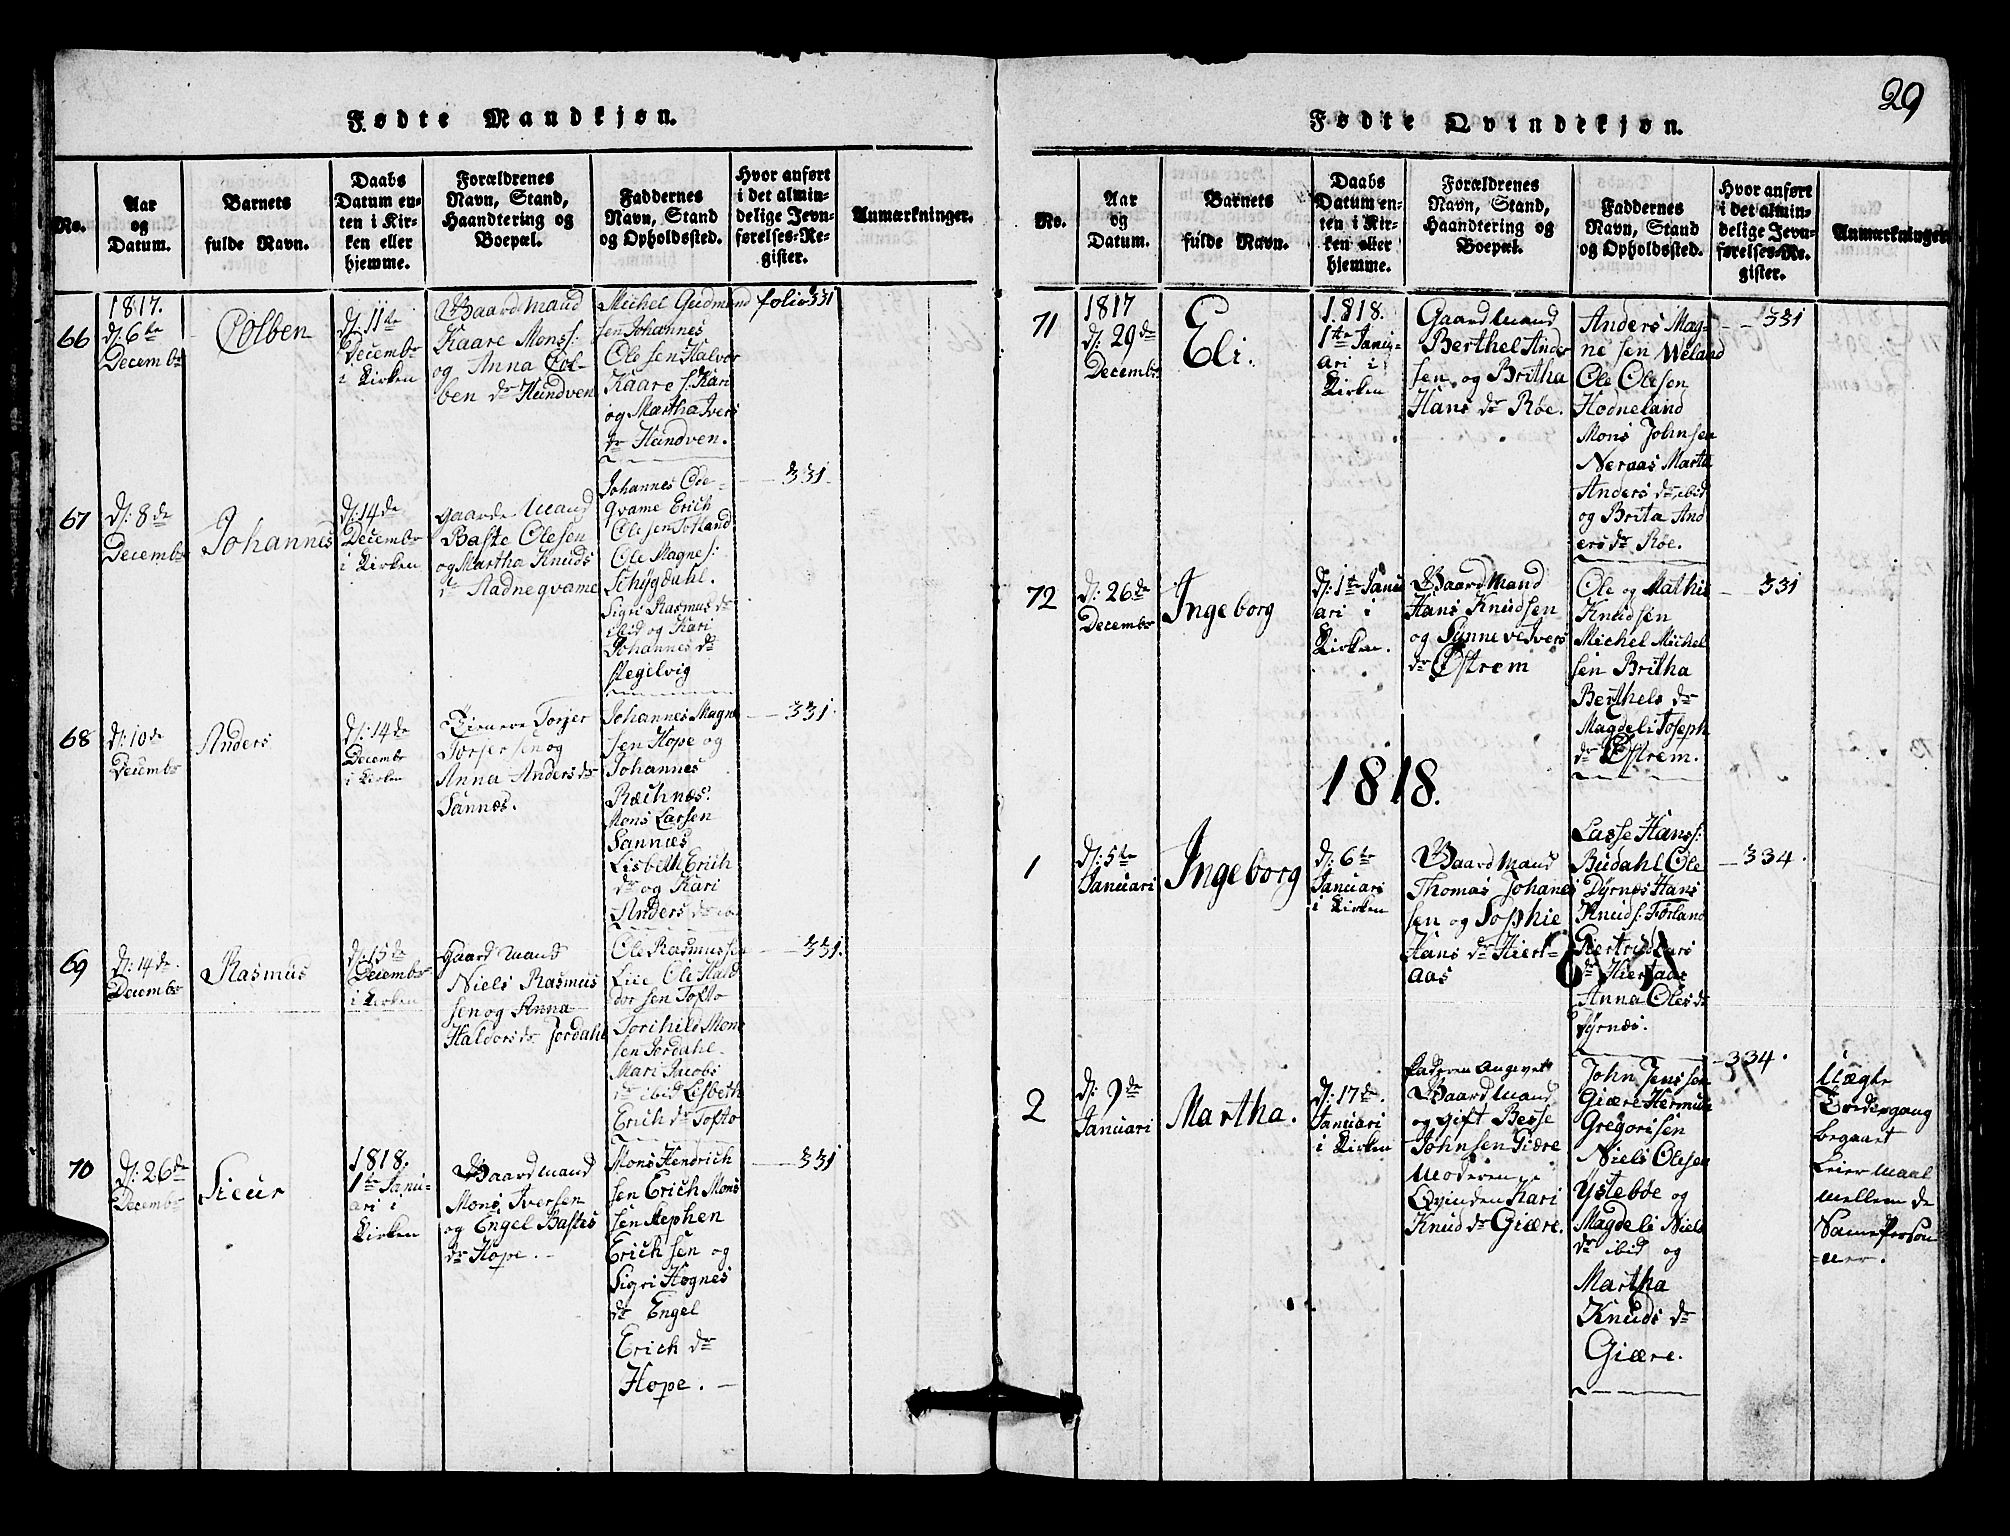 Fødte Mandkjøn.
No.
Aar
og
Datum.
Barnets
fulde Navn.
Daabs
Datum en-
ten i Kir-
ken eller
hjemme.
Forældrenes
Navn, Stand,
Haandtering og
Boepæl.
Faddernes
Navn, Stand
og Opholdssted.
Hvor anført
i det almin-
delige Jevn-
førelses-Re-
gister.
Anmærkninger.
66
1817.
d/: 6te
Decembr
Colben
d/: 11te
Decembr
i Kirken
Gaardmand
Kaare Mons s:
og Anna Col-
ben dr Hundven
Michel Gudmund
sen Johannes
Olesen Halvor
Kaare s. Kari
og Martha Ivers
dr Hundven.
folio 331
67
d/: 8de
Decembr
Johannes
d/: 14de
Decembr
i Kirken
gaarde Mand
Baste Olesen
og Martha Knuds
dr Aadneqvame
Johannes Coe-
qvame Erich
Olesen Totland
Ole Magne s:
Schygdahl.
Sigri Rasmus dr
ibid og Kari
Johannes dr
Stegelvig
331.
68
d/: 10de
Decembr
Anders
d/: 14de
Decembr
i Kirken
Torjer
Torjersen og
Anna Anders dr
Sannæs.
Johannes Magne
sen Hope og
Johannes
Ræchnæs.
Mons Larsen
Sannæs
Lisbeth Erich
dr og Kari
Anders dr
331.
69
d/: 14de
Decembr
Rasmus
d/: 15de
Decembr
i Kirken
Gaard Mand
Niels Rasmus
sen og Anna
Haldors dr Jordahl
Ole Rasmussen
Lie Ole Hand
dor sen Tofto
Torchild Mons
sen Jordahl
Mari Jacobs
dr ibid Lisbeth
Erich dr Tofto
331.
70
d/: 26de
Decembr
Sieur
1818.
1te Janu-
ari i
Kirken
Gaardmand
Mons Iversen
og Engel Bastes
dr Hope.
Mons Hendrich
sen Erich Mons
sen Stephen
Erichsen og
Sigri Hognes
dr Engel
Erich dr
Hope.
331
29
Fødte Qvindekjøn.
No.
Aar
og
Datum.
Barnets
fulde Navn.
Daabs
Datum en-
ten i Kir-
ken eller
hjemme.
Forældrenes
Navn, Stand,
Haandtering og
Boepæl.
Faddernes
Navn, Stand
og Opholdssted.
Hvor anført
i det almin-
delige Jevn-
førelses-Re-
gister.
Anmærkninger
71
1817
d/: 29de
Decembr
Eli.
1818.
1te Janu-
ari i
Kirken
Gaardmand
Berthel Ander
sen og Britha
Hans dr Røe.
Anders Mag-
ne sen Meland
Ole Olesen
Hodneland
Mons Johnsen
Neraas Marta
Anders dr ibid
og Brita And
ers dr Røe.
331
72
d/: 26de
Decembr
Ingeborg
d/: 1te Janu
ari i
Kirken.
Gaardmand
Hans Knudsen
og Synneve Ivers
dr Østrem
Ole og Mathis
Knudsen
Michel Michel
sen Britha
Berthels dr
Magdeli Joseph
dr Østrem.
331
1818.
1
d/: 5te
Januari
Ingeborg
d/: 6te
Januari
i Kirken
Gaardmand
Thomas Johanes
sen og Sophie
Hans dr Hiert-
aas
Lasse Hans s:
Budahl Ole
Dyrnes Hans
Knud s: Førland
Giertrud Lars
dr Hiertaas
Anna Oles dr
Dyrnes.
334.
2
d/: 9de
Januari
Martha.
d/: 17de
Januari
i Kirken
Faderen angivet
Gaardmand
og gift Besse
Johnsen Giære
Moderen
Qvinden Kari
Knud dr Giære.
John Jenssen
Giære Hermun
Gregorisen
Niels Olesen
Ystebøe og
Magdeli Niels
dr ibid og
Martha
Knuds dr
Giære.
334.
Uægte
Fordergang
begaaet
Leiermaal
mellem de
Samme Person-
ner.